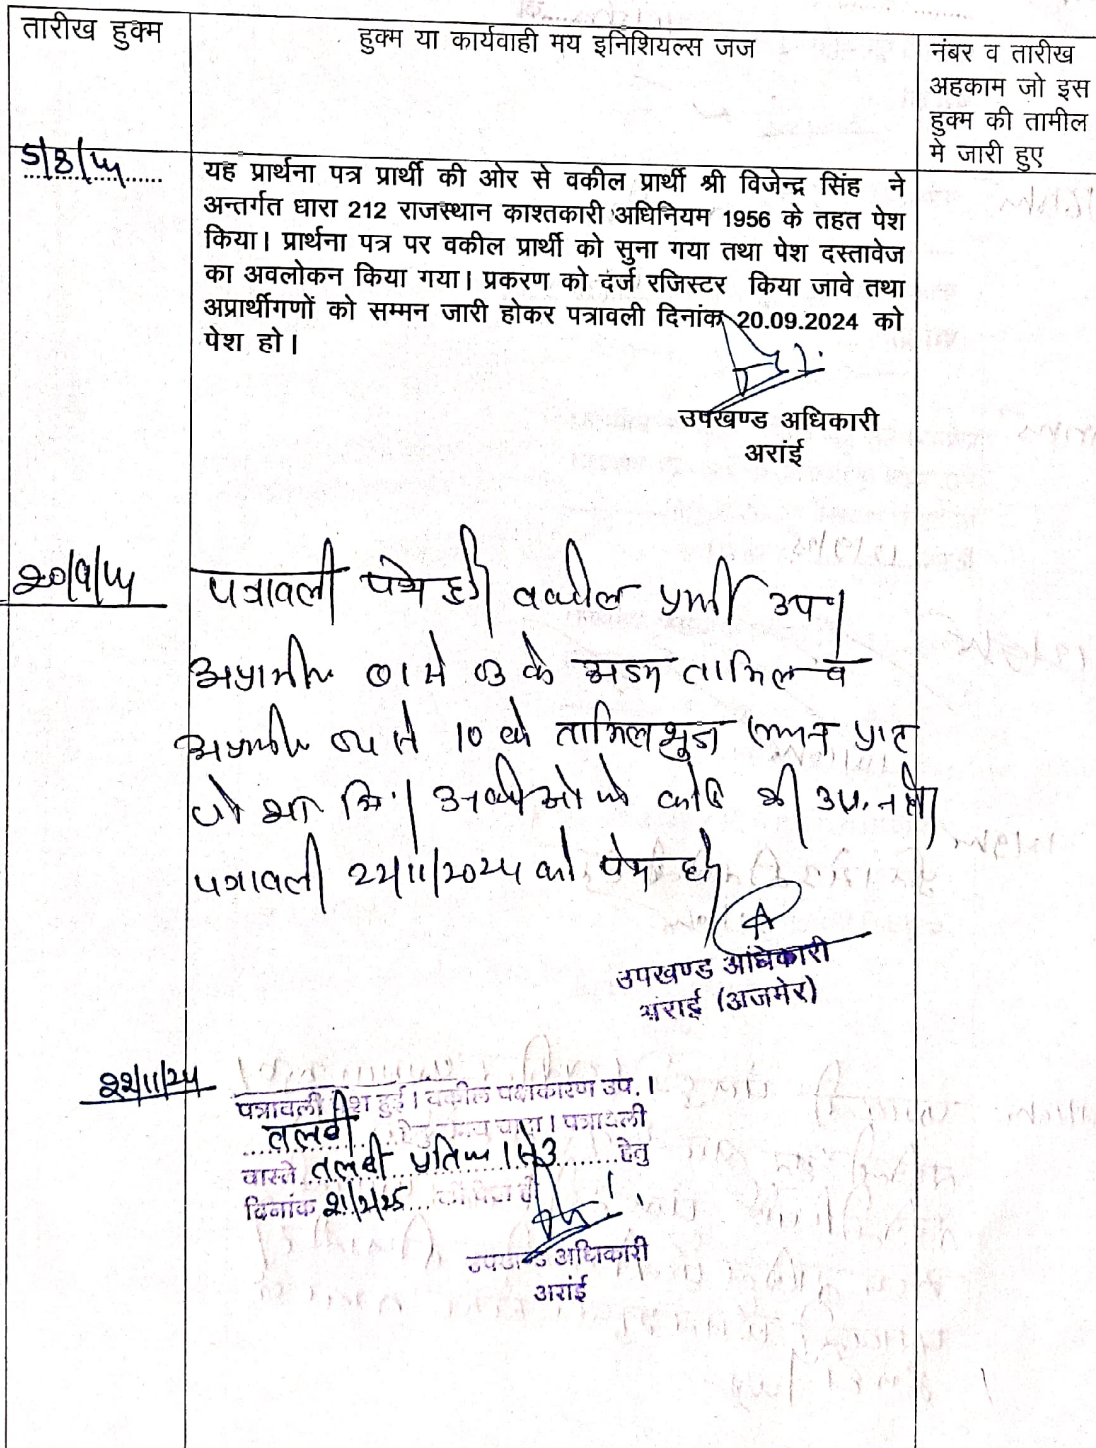 तारीख हुक्म
हुक्म या कार्यवाही मय इनिशियल्स जज
नंबर व तारीख
अहकाम जो इस
हुक्म की तामील
मे जारी हुए
5/8/24
यह प्रार्थना पत्र प्रार्थी की ओर से वकील प्रार्थी श्री विजेन्द्र सिंह ने
अन्तर्गत धारा 212 राजस्थान काश्तकारी अधिनियम 1956 के तहत पेश
किया। प्रार्थना पत्र पर वकील प्रार्थी को सुना गया तथा पेश दस्तावेज
का अवलोकन किया गया। प्रकरण को दर्ज रजिस्टर किया जावे तथा
अप्रार्थीगणों को सम्मन जारी होकर पत्रावली दिनांक 20.09.2024 को
पेश हो।
उपखण्ड अधिकारी
अरांई
20/9/24
पत्रावली पेश हुई वकील प्रार्थी उप।
अप्रार्थी 01 से 03 के अदम तामिल व
अप्रार्थी 04 से 10 के तामिलशुदा सम्मन प्राप्त
पत्रावली 22/11/2024 को पेश हो
उपखण्ड अधिकारी
अराई (अजमेर)
22/11/24
पत्रावली पेश हुई। वकील पक्षकारण उप.।
तलबी पत्रावली
वास्ते तलबी प्रति 1 से 3 हेतु
दिनांक 21/2/25
उपखण्ड अधिकारी
अरांई